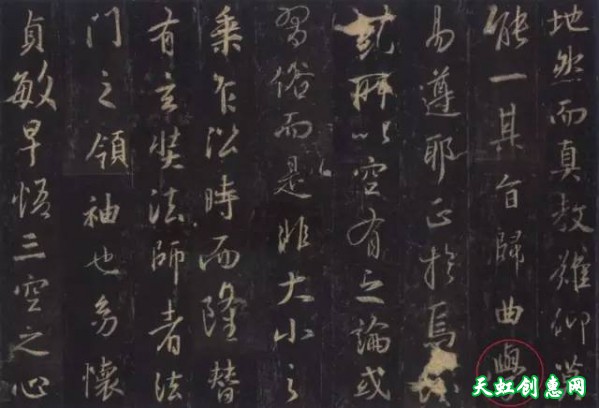 地然而真教難仰莫
能一其旨歸曲學
易遵耶正於焉
所以空有之論或
習俗而是非大小之
乘乍沿時而隆替
有玄奘法師者法
門之領袖也幼懷
貞敏早悟三空之心
天虹创惠网